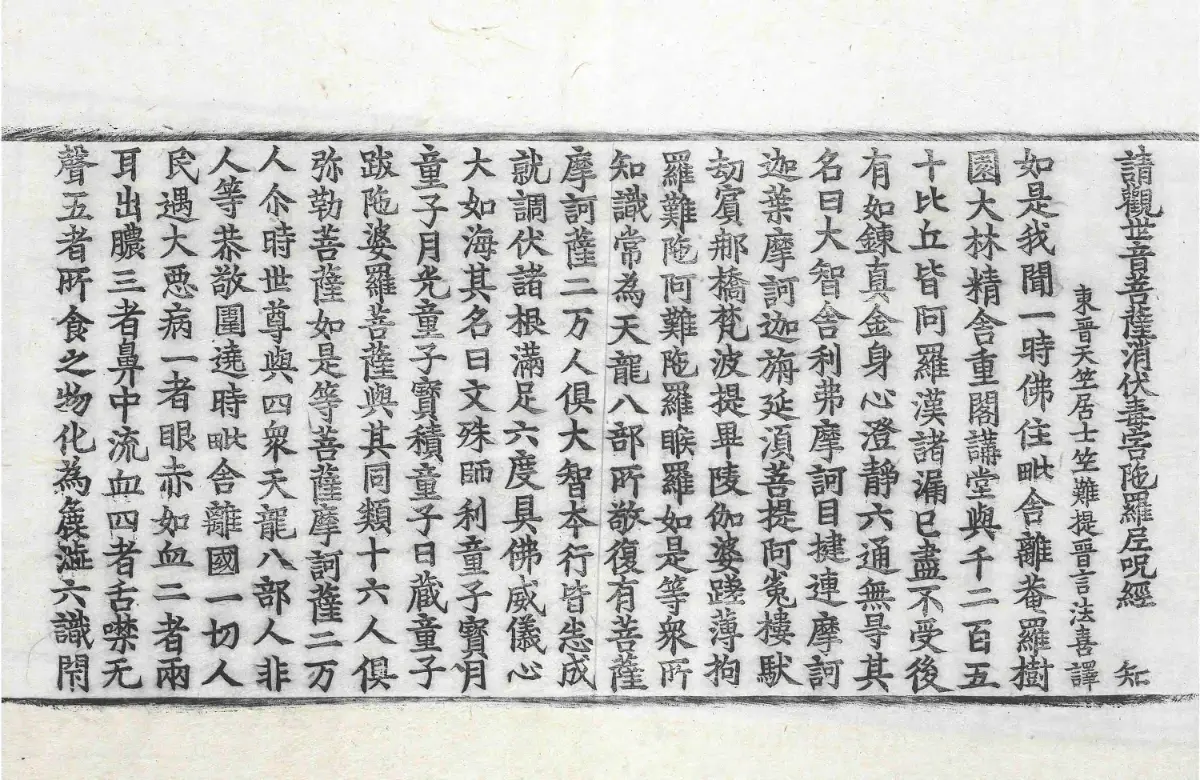 請觀世音菩薩消伏毒害陁羅尼呪經 知
東晉天竺居士竺難提晉言法喜譯
如是我聞一時佛住毗舍離菴羅樹
園大林精舍重閣講堂與千二百五
十比丘皆阿羅漢諸漏已盡不受後
有如鍊真金身心澄靜六通無㝵其
名曰大智舍利弗摩訶目揵連摩訶
迦葉摩訶迦旃延湏菩提阿㝹樓馱
劫賔那橋梵波提畢陵伽婆蹉薄拘
羅難陁阿難陁羅睺羅如是等衆所
知識常為天龍八部所敬復有菩薩
摩訶薩二万人俱大智本行皆悉成
就調伏諸根滿足六度具佛威儀心
大如海其名曰文殊師利童子寳月
童子月光童子寳積童子日蔵童子
跋陁婆羅菩薩與其同類十六人俱
弥勒菩薩如是等菩薩摩訶薩二万
人尒時世尊與四衆天龍八部人非
人等恭敬圍遶時毗舍離國一切人
民遇大惡病一者眼赤如血二者兩
耳出膿三者鼻中流血四者舌噤无
聲五者所食之物化為麁澁六識閇